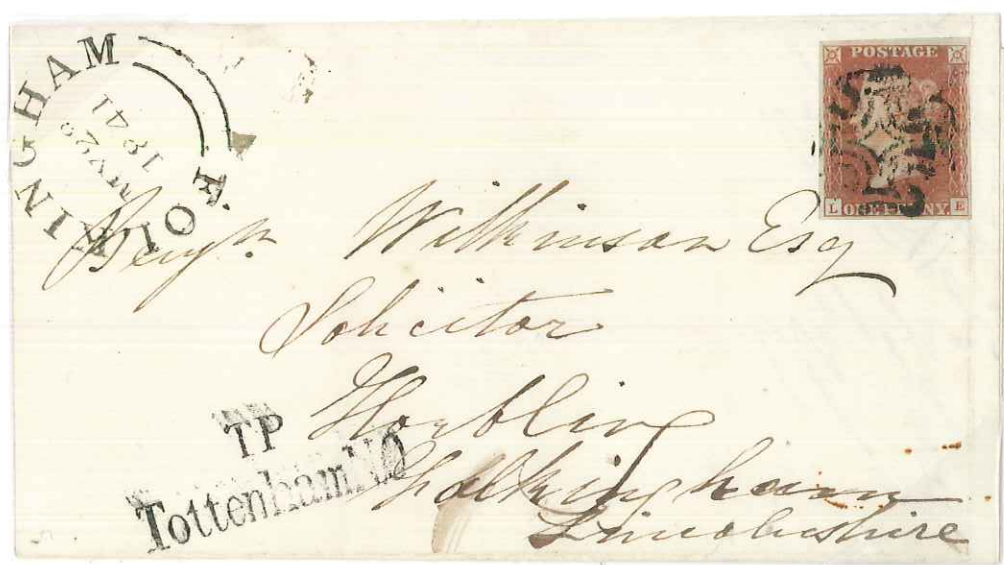 FOLKINGHAM
MY 28
1841
POSTAGE
ONE PENNY
L E
Benjn. Wilkinson Esq
Solicitor
Horbling
Falkingham
Lincolnshire
TP
Tottenham N.O